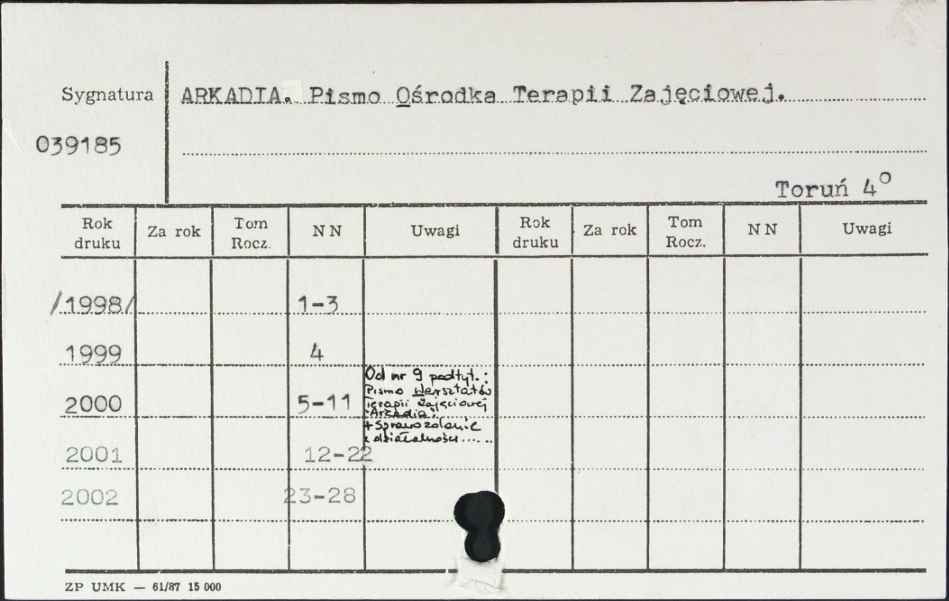 Sygnatura ARKADIA. Pismo Ośrodka Terapii Zajęciowej.
039185
Toruń 4°
Rok druku Za rok Tom Rocz. NN Uwagi Rok druku Za rok Tom Rocz. NN Uwagi
/1998/ 1-3
1999 4
2000 5-11
Od nr 9 podtyt.:
Pismo Warsztatów
Terapii Zajęciowej
"Arkadia".
+ Sprawozdanie
z działalności.....
2001 12-22
2002 23-28
ZP UMK — 61/87 15 000